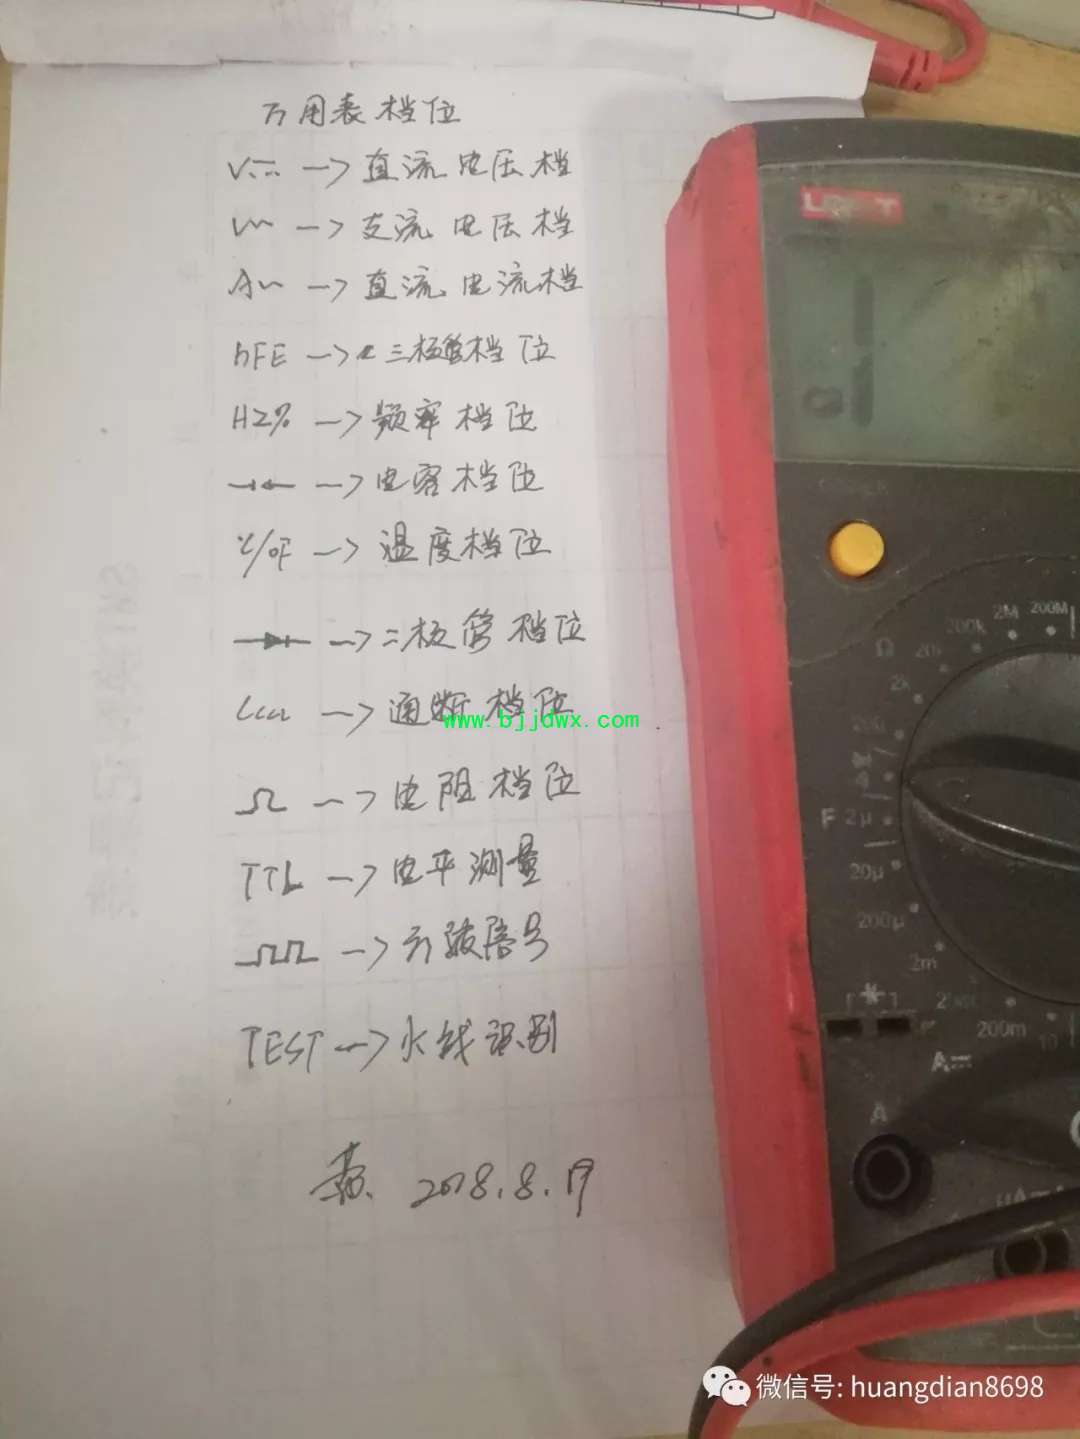 万用表档位
V⎓ —> 直流电压档
V~ —> 交流电压档
A~ —> 直流电流档
hFE —> 三极管档位
HZ% —> 频率档位
—> 电容档位
℃/oF —> 温度档位
—> 二极管档位
—> 通断档位
www.bjjdwx.com
Ω —> 电阻档位
TTL —> 电平测量
—> 引拨信号
TEST —> 火线识别
2018.8.19
UNI-T
2M
200M
200k
20k
Ω
2k
200
F 2μ
20μ
200μ
2m
200m
10
A⎓
A
微信号: huangdian8698